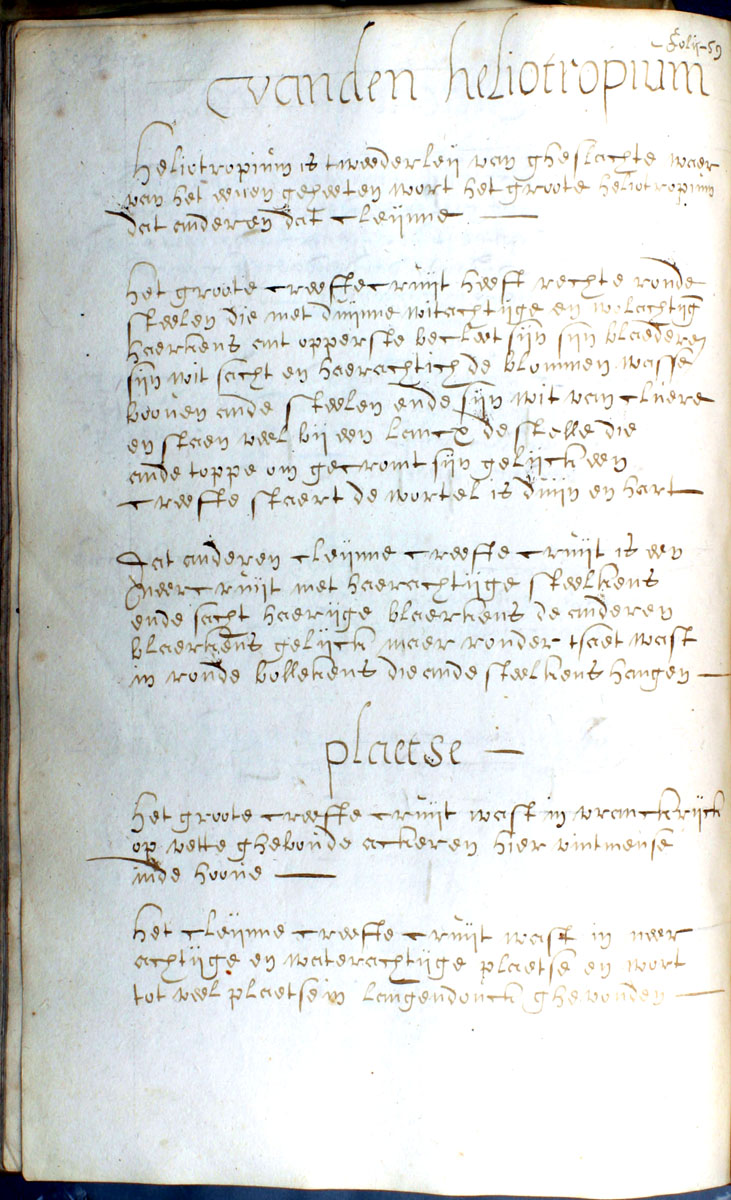 folij-59
vanden heliotropium
Heliotropium is tweederleij van gheslachte waer
van het eenen geheeten wort het groote heliotropium
dat anderen dat cleijnne
Het groote creeffte cruijt heeft rechte ronde
steelen die met duijnne witachtijge en wolachtijg
haerkens ant opperste becleet sijn sijn blaederen
sijn wit sacht en haerachtich de blommen wasse
booven ande steelen ende sijn wit van cluere
en staen veel bij een lancx de stelle die
ande toppe om gecromt sijn gelijck een
creeffte staert de wortel is duijn en hart
Dat anderen cleijnne creeffte cruijt is een
neercruijt met haerachtijge steelkens
ende sacht haerijge blaerkens de anderen
blaerkens gelijck maer ronder tsaet wast
in ronde bollekens die ande steelkens hangen
plaetse
Het groote creeffte cruijt wast in vranckrijck
op vette ghebonde ackeren hier vintmense
inde hoove
Het cleijnne creeffte cruijt wast in neer
achtijge en waterachtijge plaetse en wort
tot veel plaetse in langendonck ghevonden